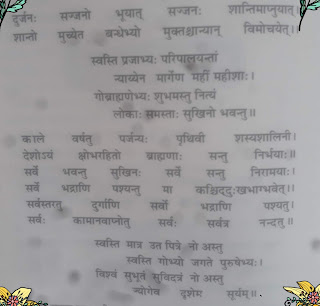 दुर्जनः सज्जनो भूयात् सज्जनः शान्तिमाप्नुयात्।
शान्तो मुच्येत बन्धेभ्यो मुक्तश्चान्यान् विमोचयेत्।।
स्वस्ति प्रजाभ्यः परिपालयन्तां
न्याय्येन मार्गेण महीं महीशाः।
गोब्राह्मणेभ्यः शुभमस्तु नित्यं
लोकाः समस्ताः सुखिनो भवन्तु॥
काले वर्षतु पर्जन्यः पृथिवी शस्यशालिनी।
देशोऽयं क्षोभरहितो ब्राह्मणाः सन्तु निर्भयाः॥
सर्वे भवन्तु सुखिनः सर्वे सन्तु निरामयाः।
सर्वे भद्राणि पश्यन्तु मा कश्चिद्दुःखभाग्भवेत्।।
सर्वस्तरतु दुर्गाणि सर्वो भद्राणि पश्यतु।
सर्वः कामानवाप्नोतु सर्वः सर्वत्र नन्दतु॥
स्वस्ति मात्र उत पित्रे नो अस्तु
स्वस्ति गोभ्यो जगते पुरुषेभ्यः।
विश्वं सुभूतं सुविदत्रं नो अस्तु
ज्योगेव दृशेम सूर्यम्॥